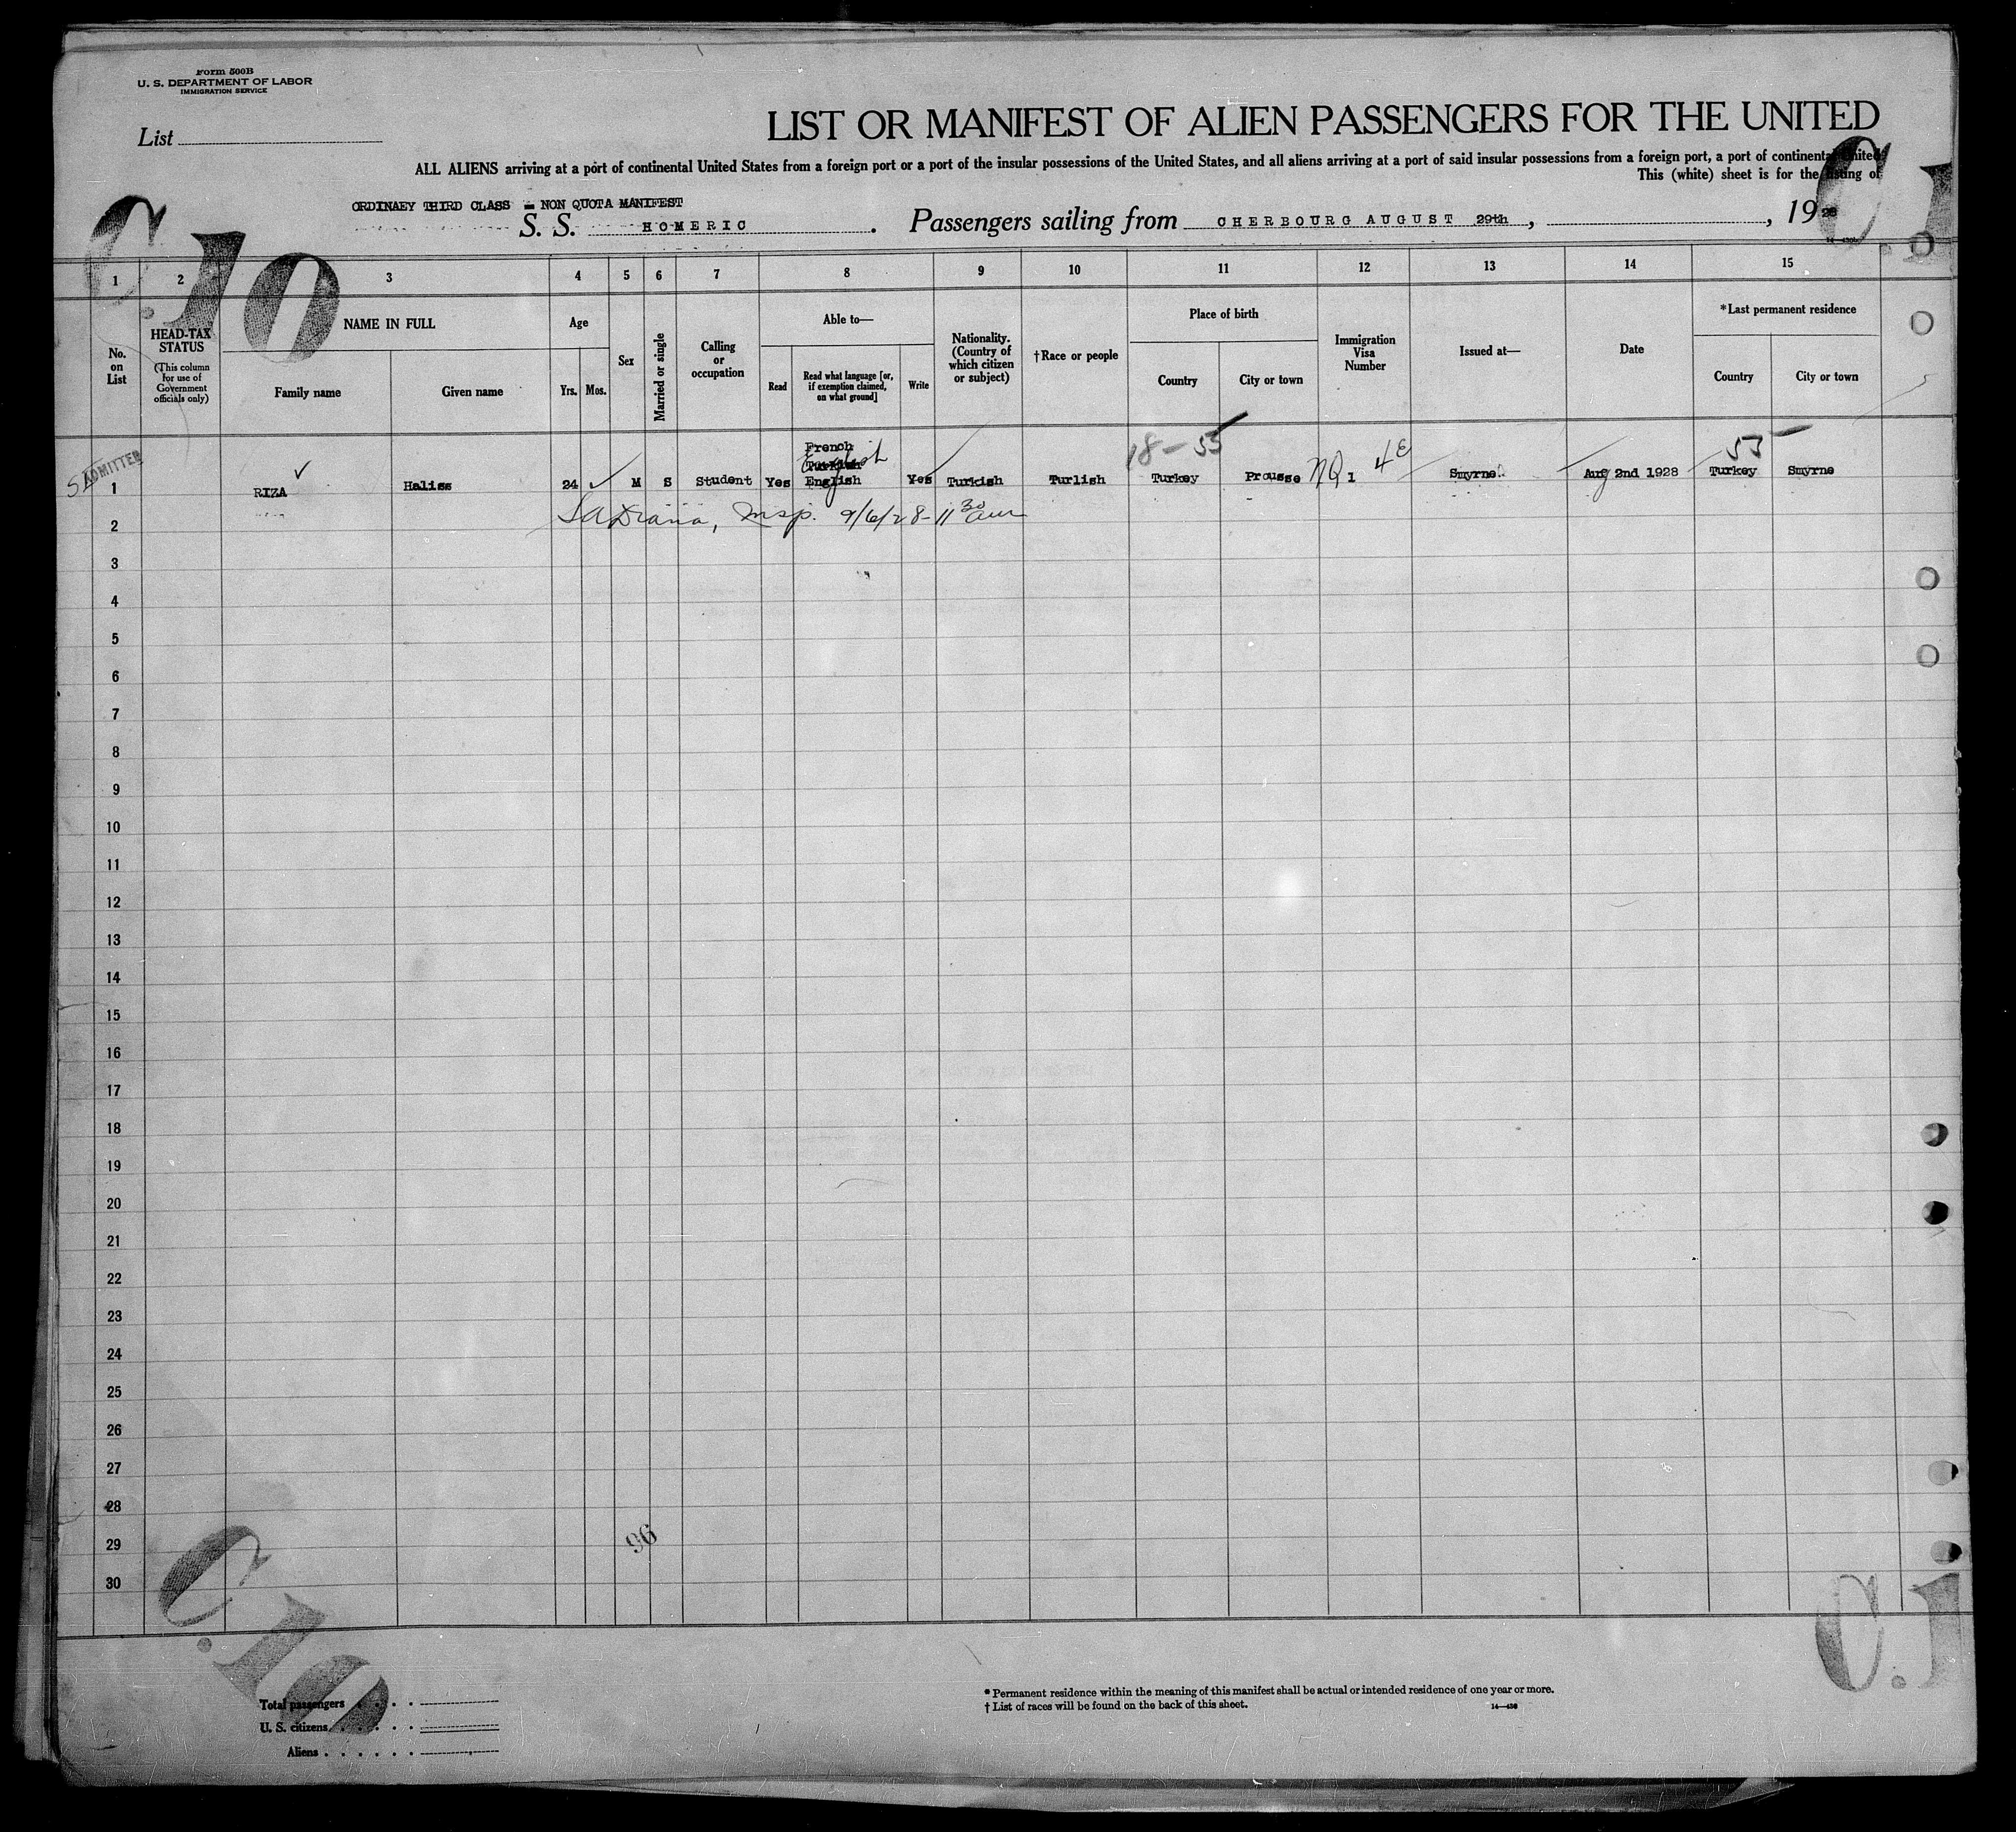 Form 500B
U. S. DEPARTMENT OF LABOR
IMMIGRATION SERVICE
List
LIST OR MANIFEST OF ALIEN PASSENGERS FOR THE UNITED
ALL ALIENS arriving at a port of continental United States from a foreign port or a port of the insular possessions of the United States, and all aliens arriving at a port of said insular possessions from a foreign port, a port of continental United
This (white) sheet is for the listing of
C.10
C.1
ORDINAEY THIRD CLASS - NON QUOTA MANIFEST
S. S. HOMERIC. Passengers sailing from CHERBOURG AUGUST 29th, , 1928
1 2 3 4 5 6 7 8 9 10 11 12 13 14 15
No. on List
HEAD-TAX STATUS
(This column for use of Government officials only)
NAME IN FULL
Family name
Given name
Age
Yrs.
Mos.
Sex
Married or single
Calling or occupation
Able to—
Read
Read what language [or, if exemption claimed, on what ground]
Write
Nationality. (Country of which citizen or subject)
†Race or people
Place of birth
Country
City or town
Immigration Visa Number
Issued at—
Date
*Last permanent residence
Country
City or town
ADMITTED
18-55
55
French
Turkish
English
1 RIZA Haliss 24 M S Student Yes English Yes Turkish Turlish Turkey Prousse NQ 1 4E Smyrne Aug 2nd 1928 Turkey Smyrne
2 Insp. 9/6/28-11 30 am
3
4
5
6
7
8
9
10
11
12
13
14
15
16
17
18
19
20
21
22
23
24
25
26
27
28
29
30
96
C.10
C.1
Total passengers
U. S. citizens
Aliens
* Permanent residence within the meaning of this manifest shall be actual or intended residence of one year or more.
† List of races will be found on the back of this sheet.
14—430